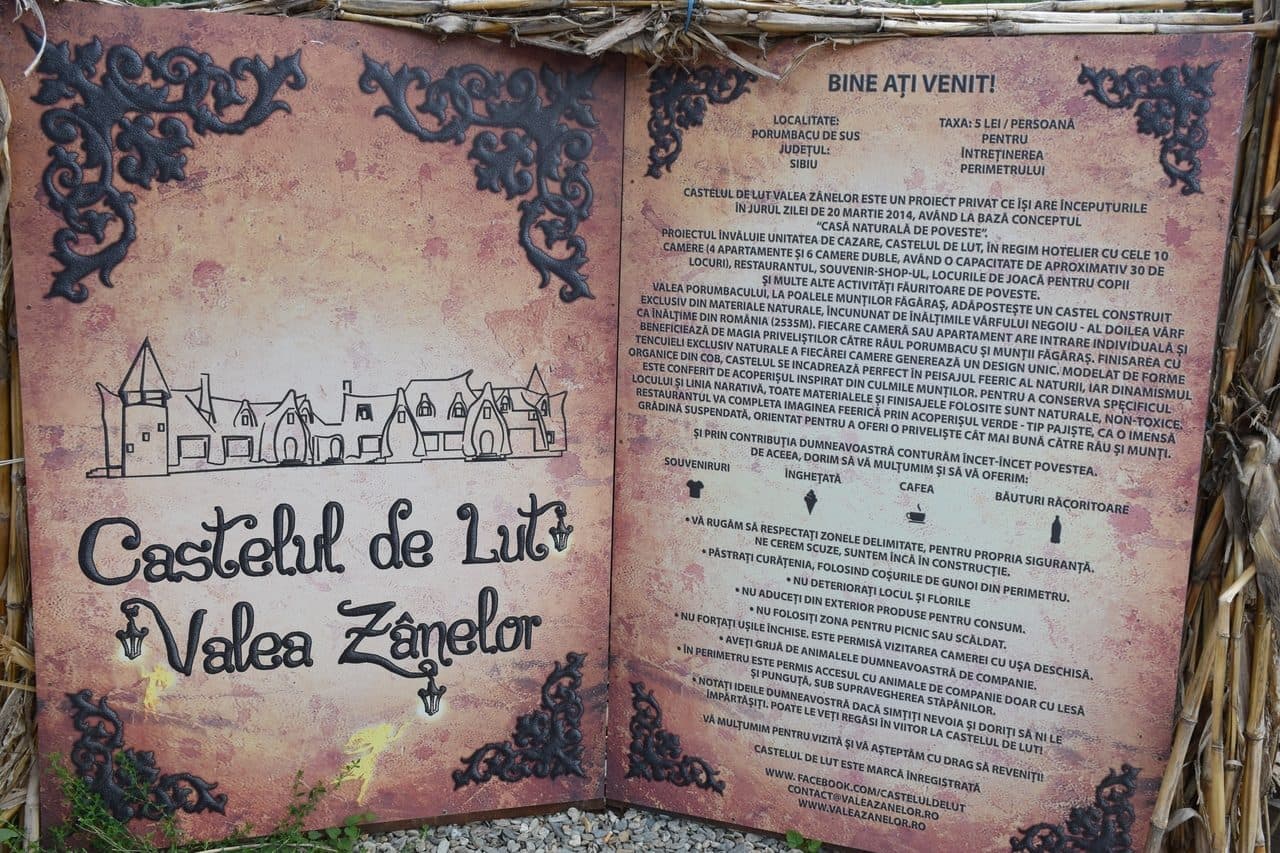 Castelul de Lut
Valea Zânelor
BINE AȚI VENIT!
LOCALITATE:
PORUMBACU DE SUS
JUDEȚUL:
SIBIU
TAXA: 5 LEI / PERSOANĂ
PENTRU
ÎNTREȚINEREA
PERIMETRULUI
CASTELUL DE LUT VALEA ZÂNELOR ESTE UN PROIECT PRIVAT CE ÎȘI ARE ÎNCEPUTURILE
ÎN JURUL ZILEI DE 20 MARTIE 2014, AVÂND LA BAZĂ CONCEPTUL
“CASĂ NATURALĂ DE POVESTE”.
PROIECTUL ÎNVĂLUIE UNITATEA DE CAZARE, CASTELUL DE LUT, ÎN REGIM HOTELIER CU CELE 10
CAMERE (4 APARTAMENTE ȘI 6 CAMERE DUBLE, AVÂND O CAPACITATE DE APROXIMATIV 30 DE
LOCURI), RESTAURANTUL, SOUVENIR-SHOP-UL, LOCURILE DE JOACĂ PENTRU COPII
ȘI MULTE ALTE ACTIVITĂȚI FĂURITOARE DE POVESTE.
VALEA PORUMBACULUI, LA POALELE MUNȚILOR FĂGĂRAȘ, ADĂPOSTEȘTE UN CASTEL CONSTRUIT
EXCLUSIV DIN MATERIALE NATURALE, ÎNCUNUNAT DE ÎNĂLȚIMILE VÂRFULUI NEGOIU - AL DOILEA VÂRF
CA ÎNĂLȚIME DIN ROMÂNIA (2535M). FIECARE CAMERĂ SAU APARTAMENT ARE INTRARE INDIVIDUALĂ ȘI
BENEFICIEAZĂ DE MAGIA PRIVELIȘTILOR CĂTRE RÂUL PORUMBACU ȘI MUNȚII FĂGĂRAȘ. FINISAREA CU
TENCUIELI EXCLUSIV NATURALE A FIECĂREI CAMERE GENEREAZĂ UN DESIGN UNIC. MODELAT DE FORME
ORGANICE DIN COB, CASTELUL SE INCADREAZĂ PERFECT ÎN PEISAJUL FEERIC AL NATURII, IAR DINAMISMUL
ESTE CONFERIT DE ACOPERIȘUL INSPIRAT DIN CULMILE MUNȚILOR. PENTRU A CONSERVA SPECIFICUL
LOCULUI ȘI LINIA NARATIVĂ, TOATE MATERIALELE ȘI FINISAJELE FOLOSITE SUNT NATURALE, NON-TOXICE.
RESTAURANTUL VA COMPLETA IMAGINEA FEERICĂ PRIN ACOPERIȘUL VERDE - TIP PAJIȘTE, CA O IMENSĂ
GRĂDINĂ SUSPENDATĂ, ORIENTAT PENTRU A OFERI O PRIVELIȘTE CÂT MAI BUNĂ CĂTRE RÂU ȘI MUNȚI.
ȘI PRIN CONTRIBUȚIA DUMNEAVOASTRĂ CONTURĂM ÎNCET-ÎNCET POVESTEA.
DE ACEEA, DORIM SĂ VĂ MULȚUMIM ȘI SĂ VĂ OFERIM:
SOUVENIRURI
ÎNGHEȚATĂ
CAFEA
BĂUTURI RĂCORITOARE
• VĂ RUGĂM SĂ RESPECTAȚI ZONELE DELIMITATE, PENTRU PROPRIA SIGURANȚĂ.
NE CEREM SCUZE, SUNTEM ÎNCĂ ÎN CONSTRUCȚIE.
• PĂSTRAȚI CURĂȚENIA, FOLOSIND COȘURILE DE GUNOI DIN PERIMETRU.
• NU DETERIORAȚI LOCUL ȘI FLORILE
• NU ADUCEȚI DIN EXTERIOR PRODUSE PENTRU CONSUM.
• NU FOLOSIȚI ZONA PENTRU PICNIC SAU SCĂLDAT.
• NU FORȚAȚI UȘILE ÎNCHISE. ESTE PERMISĂ VIZITAREA CAMEREI CU UȘA DESCHISĂ.
• AVEȚI GRIJĂ DE ANIMALELE DUMNEAVOASTRĂ DE COMPANIE.
• ÎN PERIMETRU ESTE PERMIS ACCESUL CU ANIMALE DE COMPANIE DOAR CU LESĂ
ȘI PUNGUȚĂ, SUB SUPRAVEGHEREA STĂPÂNILOR.
• NOTAȚI IDEILE DUMNEAVOASTRĂ DACĂ SIMȚIȚI NEVOIA ȘI DORIȚI SĂ NI LE
ÎMPĂRTĂȘIȚI. POATE LE VEȚI REGĂSI ÎN VIITOR LA CASTELUL DE LUT!
VĂ MULȚUMIM PENTRU VIZITĂ ȘI VĂ AȘTEPTĂM CU DRAG SĂ REVENIȚI!
CASTELUL DE LUT ESTE MARCĂ ÎNREGISTRATĂ
WWW. FACEBOOK.COM/CASTELULDELUT
CONTACT@VALEAZANELOR.RO
WWW.VALEAZANELOR.RO